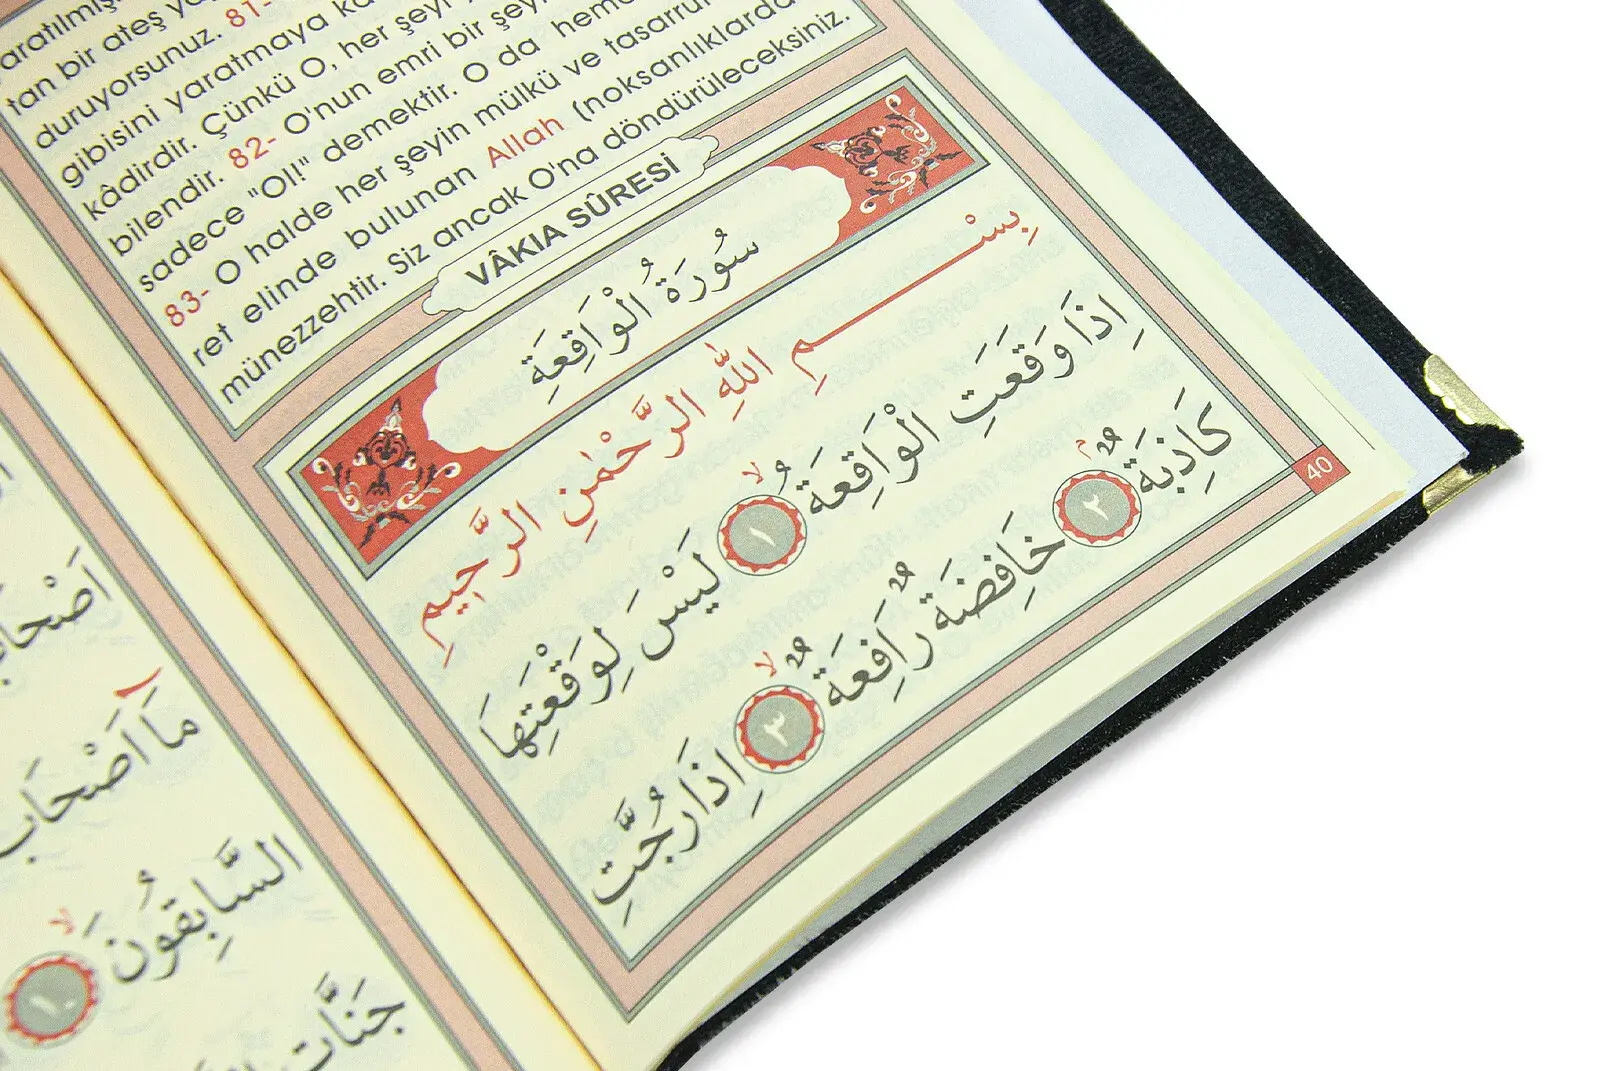 aratılmış
tan bir ateş
duruyorsunuz. 81-
gibisini yaratmaya
kâdirdir. Çünkü O, her şeyi
bilendir. 82- O'nun emri bir şeyi
sadece "Ol!" demektir. O da hemen
83- O halde her şeyin mülkü ve tasarruf
ret elinde bulunan Allah (noksanlıklarda
münezzehtir. Siz ancak O'na döndürüleceksiniz.
VÂKIA SÛRESİ
سُورَةُ الْوَاقِعَةِ
بِسْمِ اللّٰهِ الرَّحْمٰنِ الرَّحِيمِ
اِذَا وَقَعَتِ الْوَاقِعَةُ ﴿١﴾ لَيْسَ لِوَقْعَتِهَا
كَاذِبَةٌ ﴿٢﴾ خَافِضَةٌ رَافِعَةٌ ﴿٣﴾ اِذَا رُجَّتِ
40
اَصْحَاب
مَٓا اَصْحَاب
السَّابِقُونَ ﴿١٠﴾
جَنَّاتِ